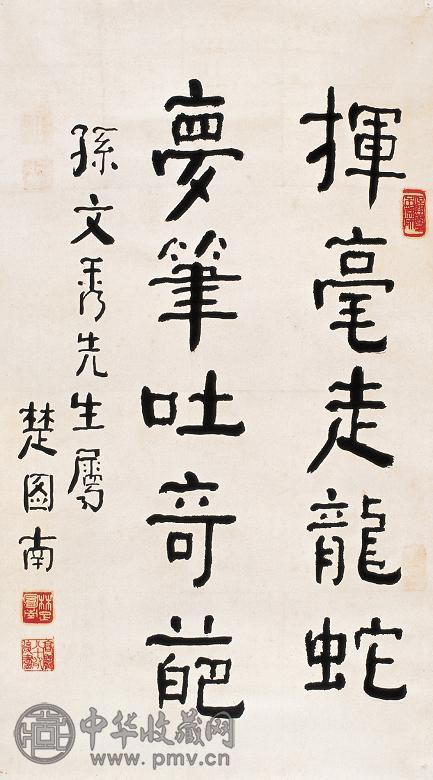 揮毫走龍蛇
夢筆吐竒葩
孫文秀先生屬
楚图南
中华收藏网
www.pmv.cn